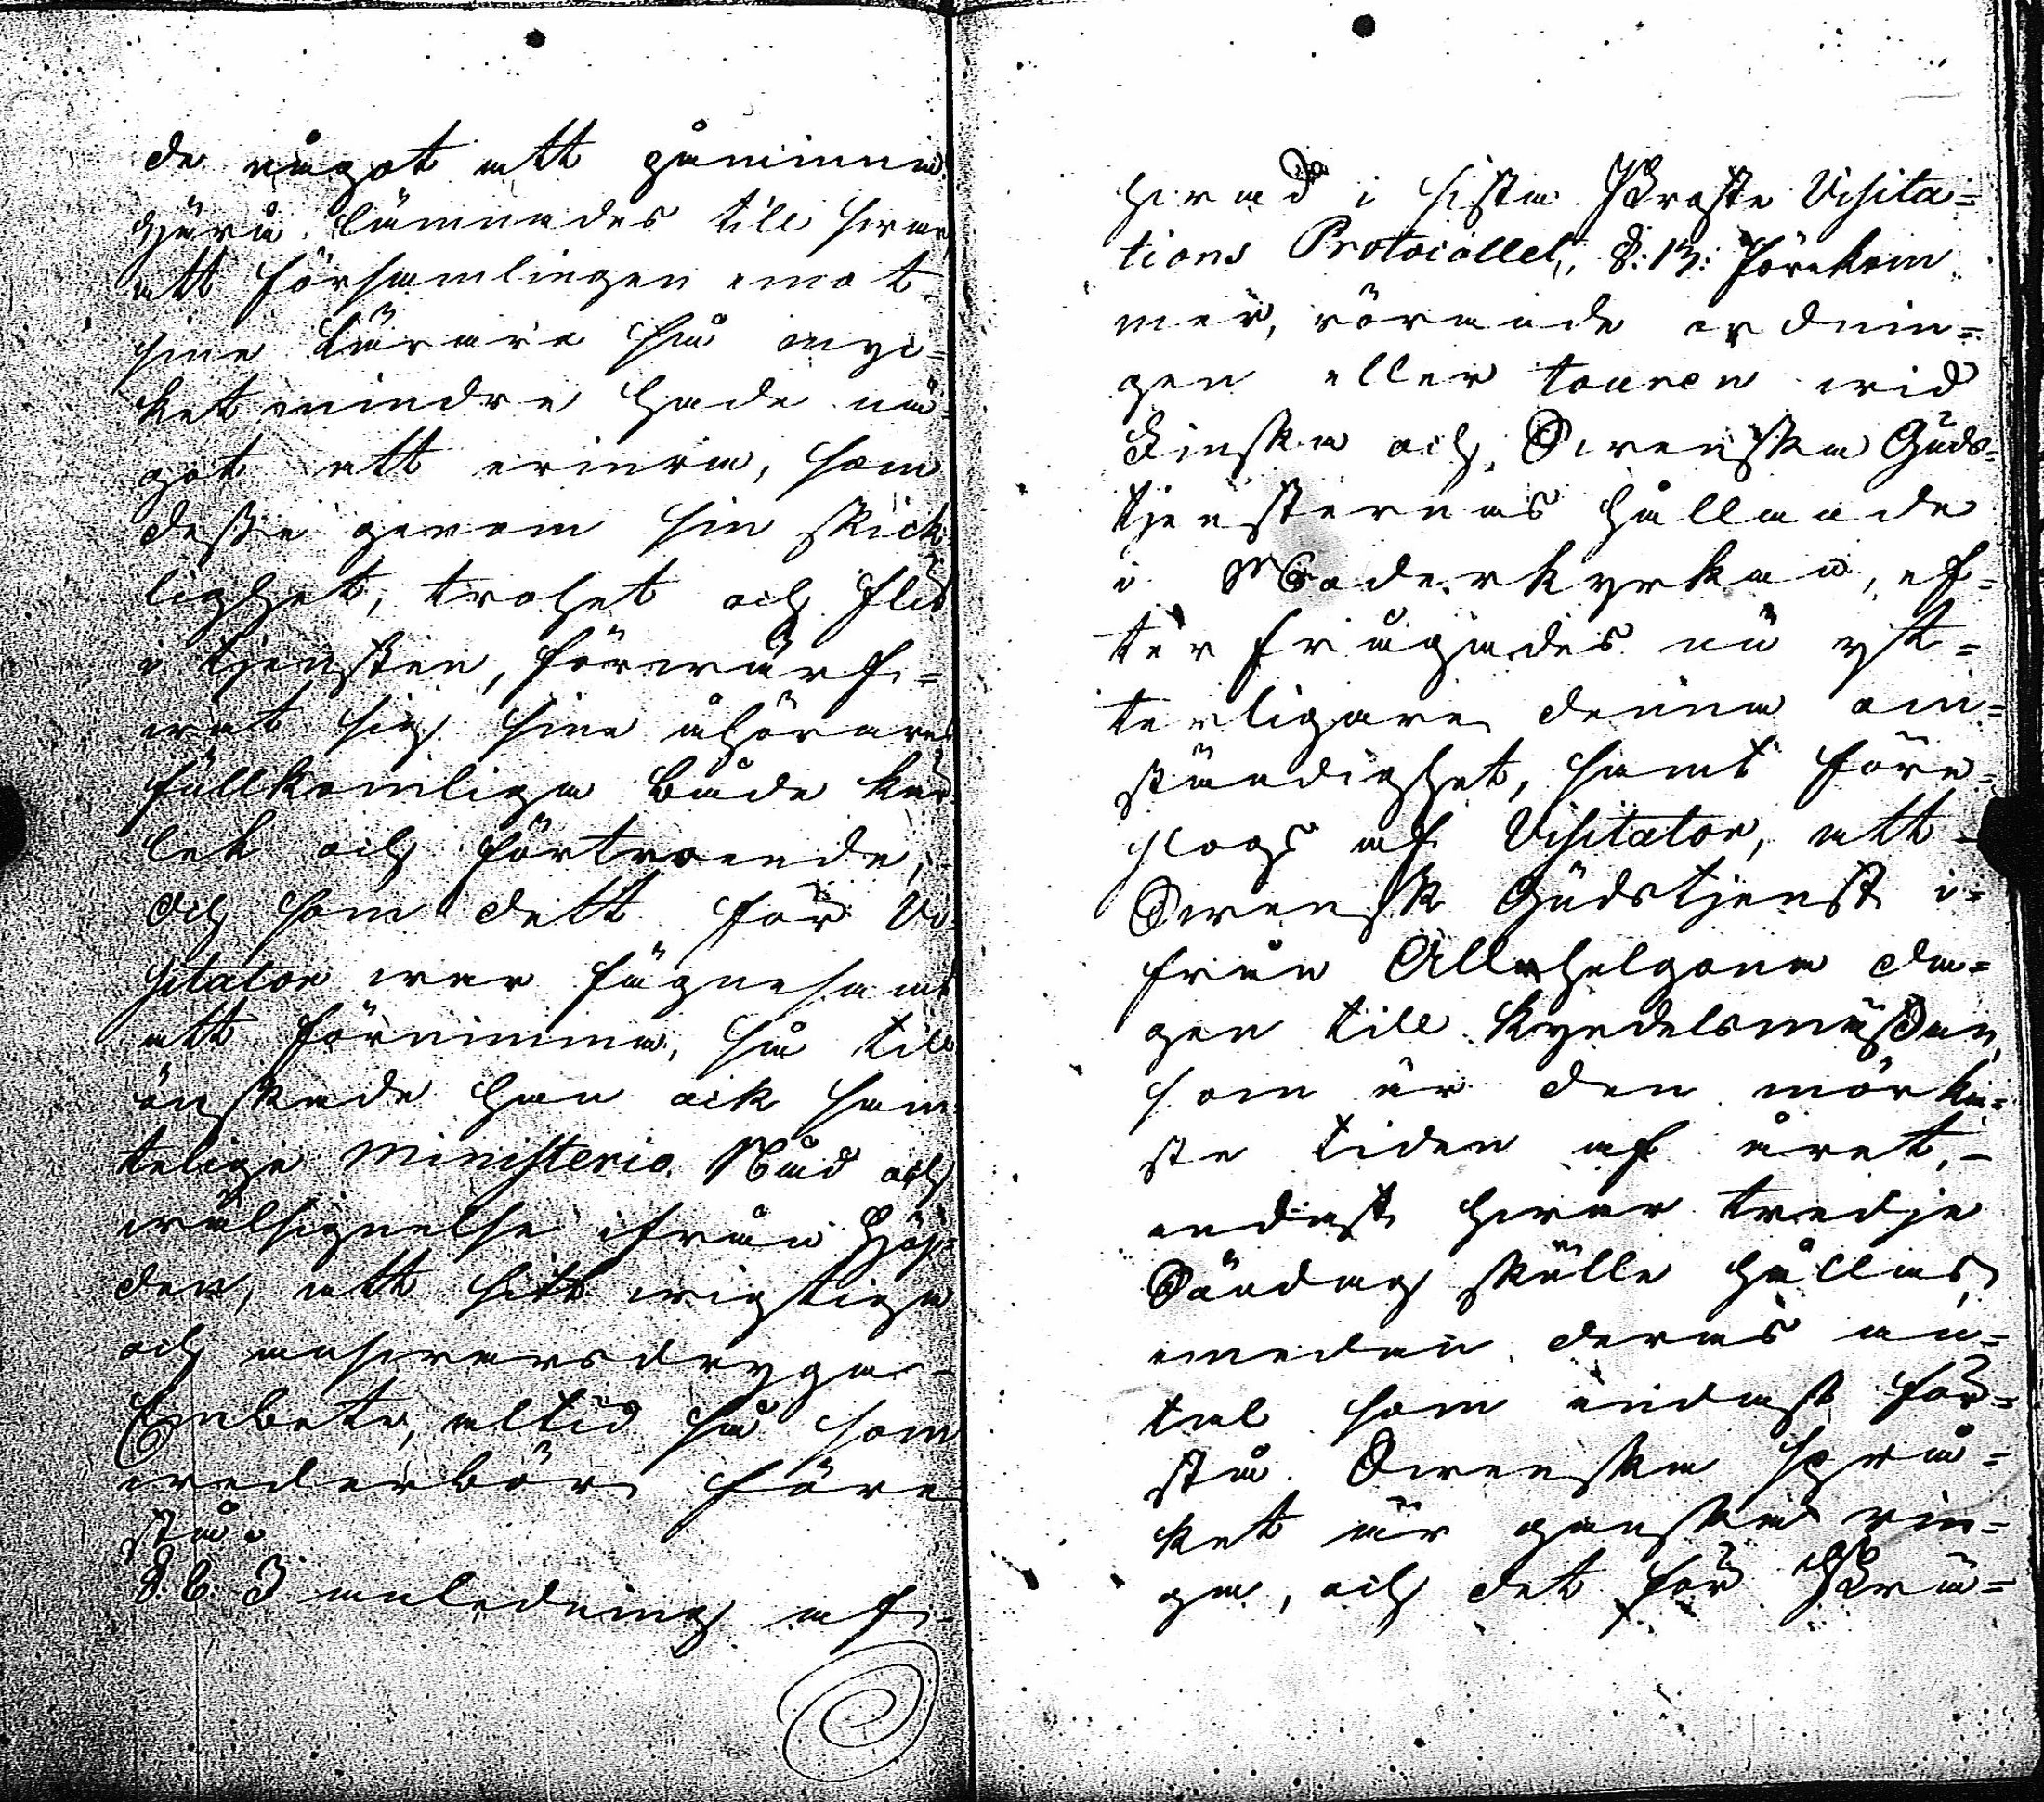 de något att påminna
derå lämnades till swar,
att församlingen emot
sine Lärare så myc-
ket mindre hade nå-
got att erinra, som
desse genom sin skick-
lighet, trohet och flit
i tjensten, förwärf-
wat sig sine åhörares
fullkomliga både kär-
lek och förtroende;
Och som dett för Vi-
sitator war fägnesamt
att förnimma, så till
önskade han ock sam-
telige Ministerio Nåd och
wälsignelse ifrån Höj-
den, att sitt wigtiga
och answarsdryga
Embete, altid så som
wederbör, före
stå.
§. 6. I anledning af
hwad i sista Proste Visita=
tions Protocollet, §: 13: förekom
mer, rörande ordnin=
gen eller touren wid
Finska och Swenska Guds-
tjensternas hållande
i Moderkyrkan, ef-
terfrågades nu yt=
terligare denna om=
ständighet, samt före-
slogs af Visitator, att
Swensk Gudstjenst i-
från Allhelgona da=
gen till Kyndelsmässan,
som är den mörka=
ste tiden af året,
endast hwar tredje
Söndag skulle hållas,
emedan deras an=
tal som endast för=
stå Swenska språ=
ket är ganska rin=
ga, och det för Prä=